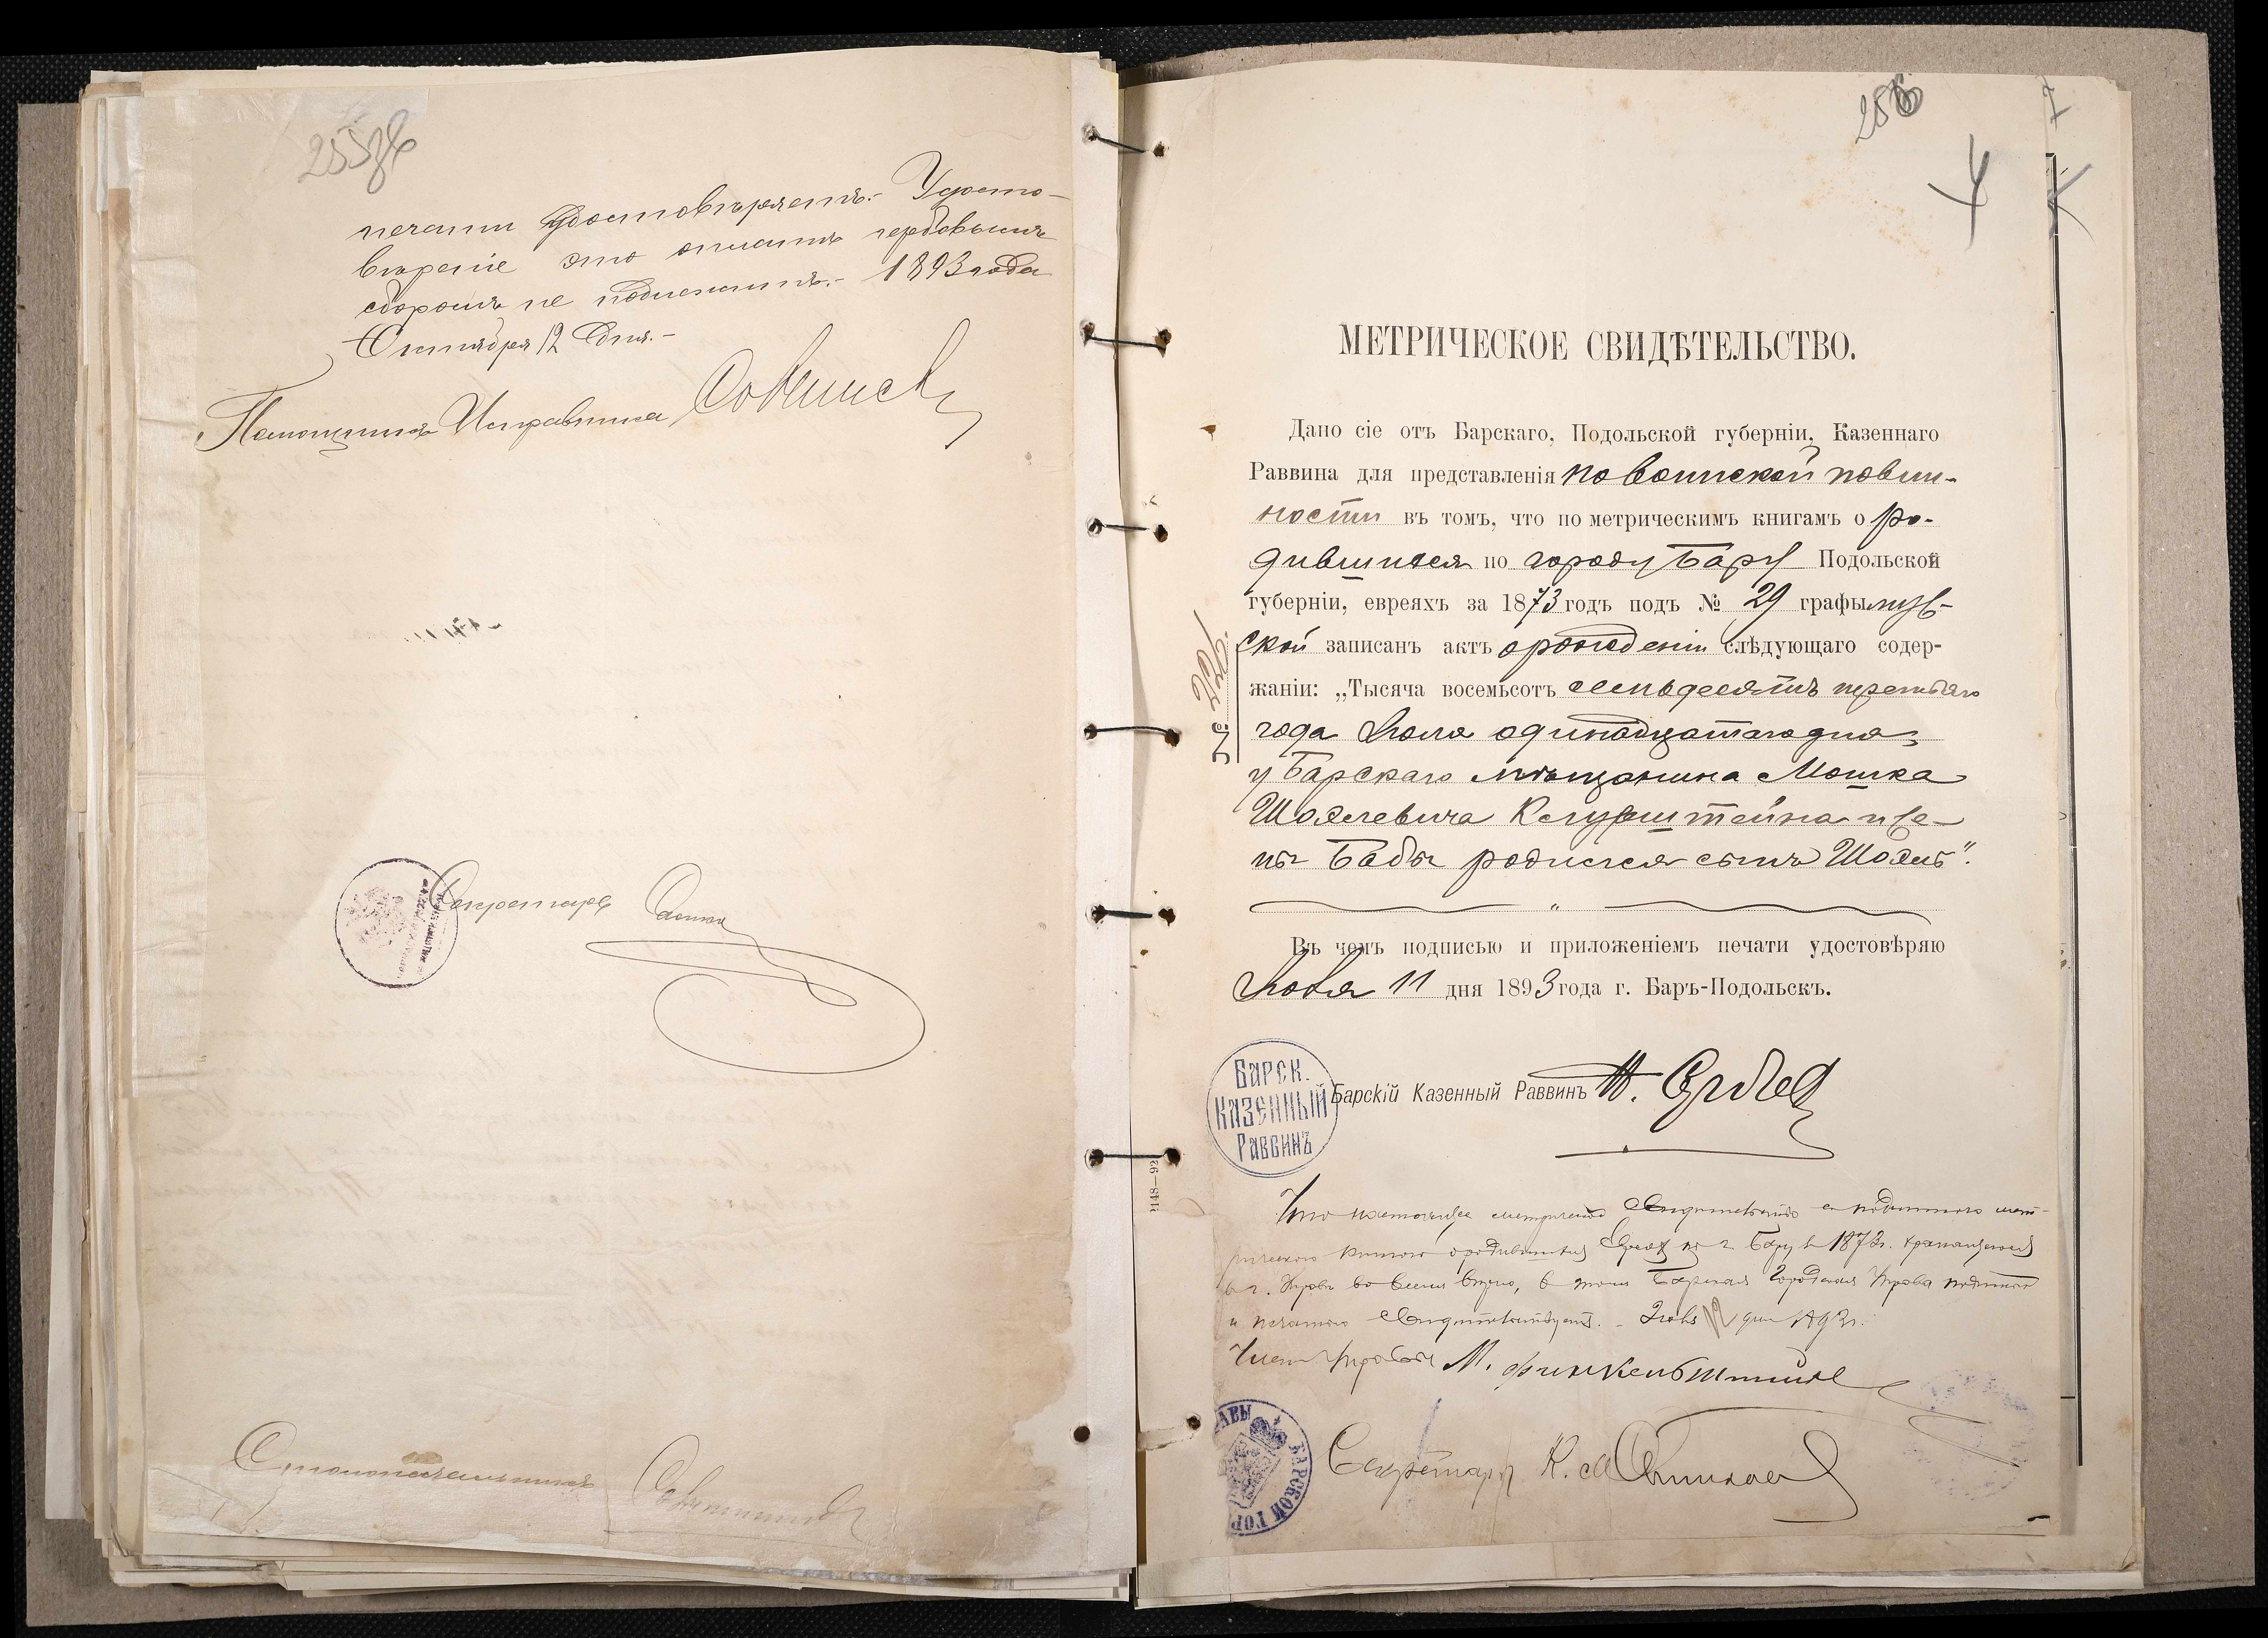 255об
печати удостовѣряетъ.- Удосто-
вѣреніе это оплатѣ гербовымъ
сборомъ не подлежитъ.- 1893 года
Октября 12 дня.-
Помощникъ Исправника
Секретарь
Столоначальникъ
256
МЕТРИЧЕСКОЕ СВИДѢТЕЛЬСТВО.
Дано сіе отъ Барскаго, Подольской губерніи, Казеннаго
Раввина для представленія по воинской повин-
ности въ томъ, что по метрическимъ книгамъ о ро-
дившихся по городу Бару Подольской
губерніи, евреяхъ за 1873 годъ подъ № 29 графы муж-
ской записанъ актъ о рожденіи слѣдующаго содер-
жаніи: „Тысяча восемьсотъ семьдесятъ третьяго
года Іюля одинадцатаго дня,
у Барскаго мѣщанина Мошка
Шоялевича и же-
ны Бабы родился сынъ Шоялъ".
Въ чемъ подписью и приложеніемъ печати удостовѣряю
11 дня 1893 года г. Баръ-Подольскъ.
БАРСК.
КАЗЕННЫЙ
РАВВИНЪ
Барскій Казенный Раввинъ
Что настоящее метрическое свидѣтельство съ подлинною мет-
рическою книгою о родившихся евреях по г. Бару за 1873г. хранящеюся
въ г. Управѣ во всемъ вѣрно, въ томъ Барская Городская Управа подписью
и печатью свидѣтельствуетъ. дня 1893г.
Членъ Управы М. Финкельштейнъ
Секретарь К.
БАРСКОЙ ГОР
АВЫ
1148—92